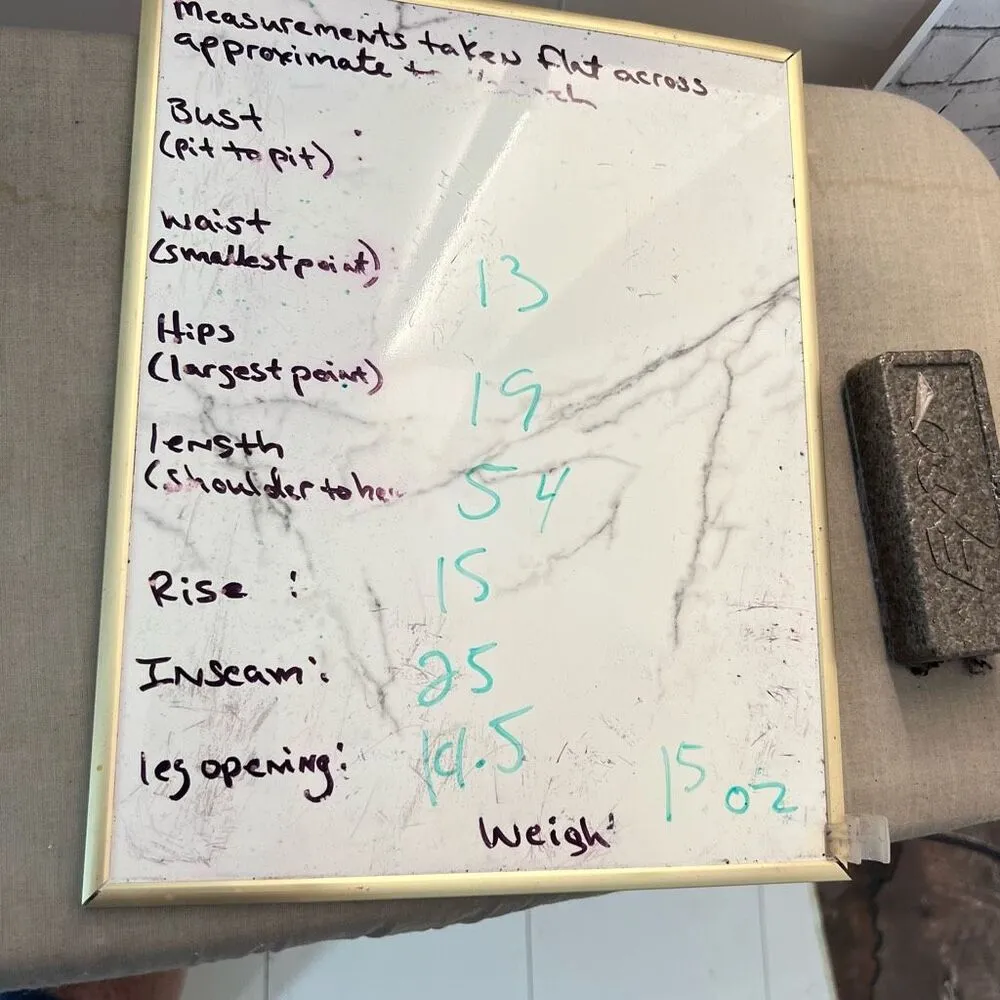 Measurements taken flat across
approximate
Bust :
(pit to pit)
Waist
(smallest point) 13
Hips
(largest point) 19
length
(shoulder to 54
Rise : 15
Inseam: 25
leg opening:
15 oz
Weigh